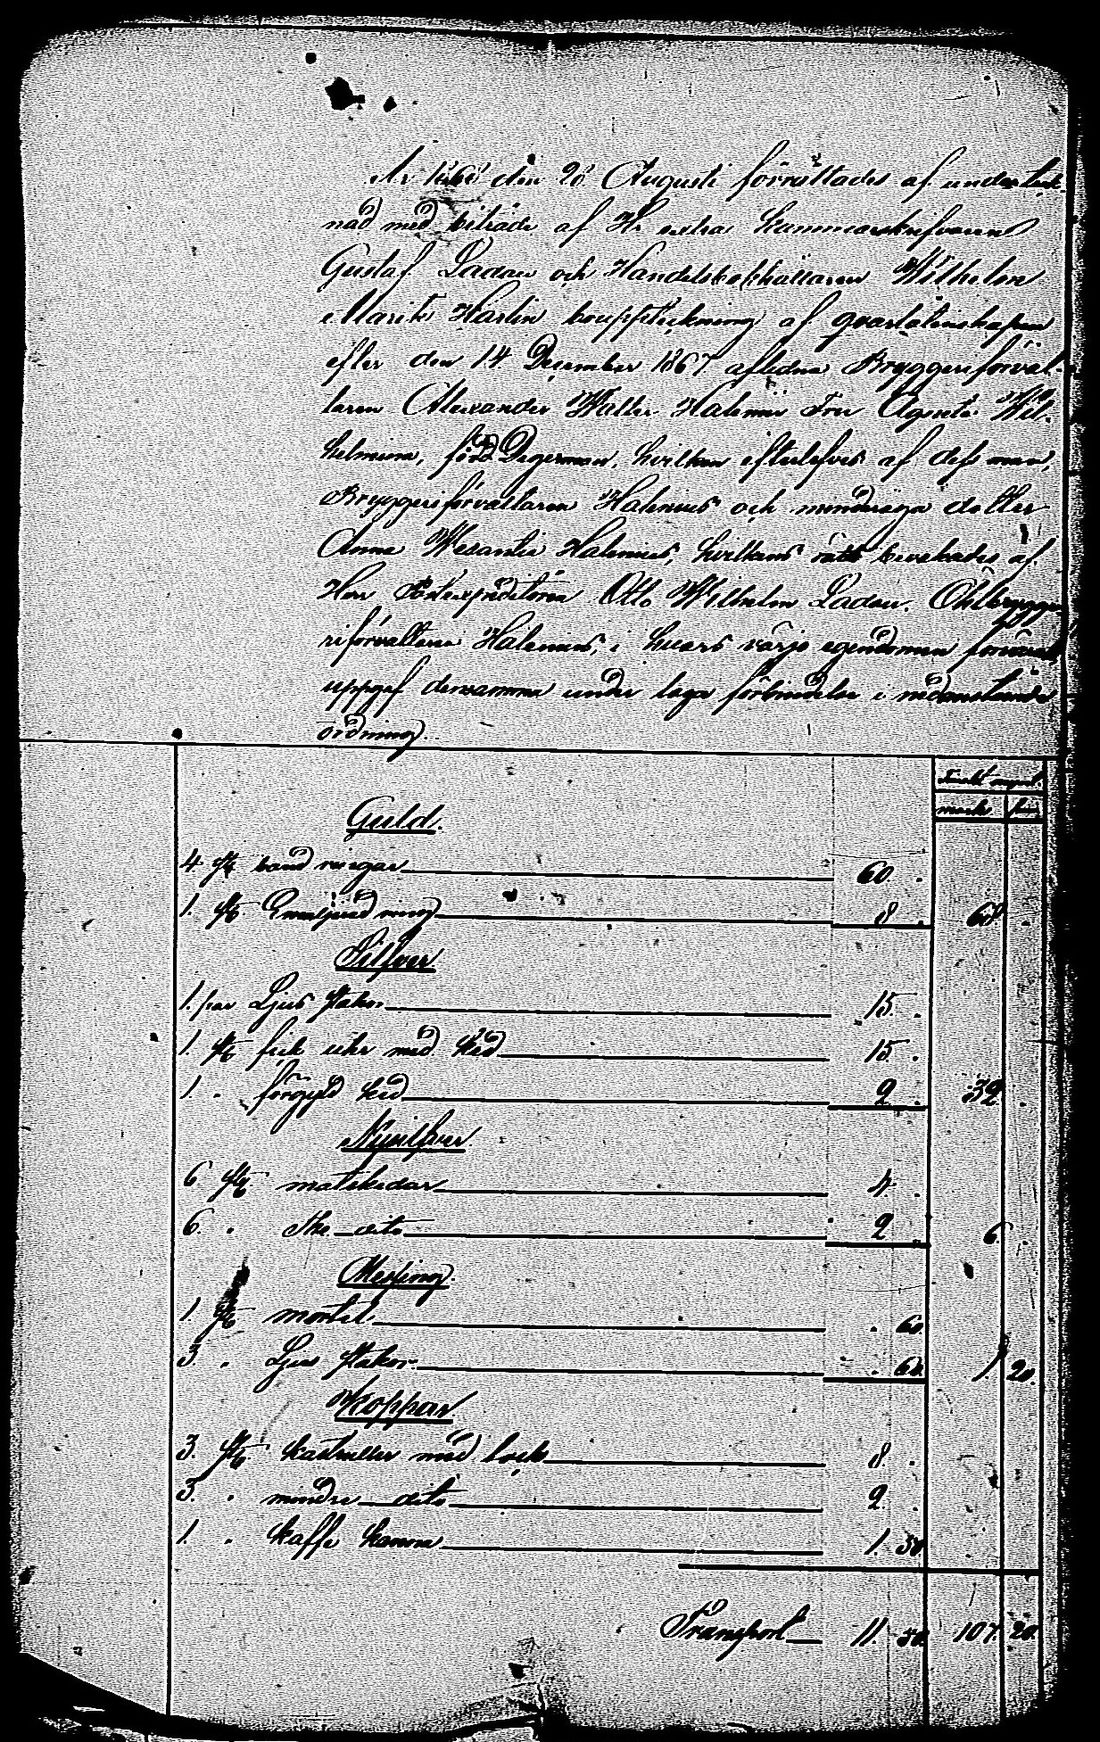 År 1868 den 28 Augusti förrättades af underteck-
nad med biträde af Hr extra Kammarskrifvaren
Gustaf Ladau och Handelsbokhållaren Wilhelm
Harlin bouppteckning af qvarlåtenskapen
efter den 14 December 1867 aflidna Bryggeriförval-
taren Alexander Walter Halenii Fru Agneta Wil-
helmina, född Degerman, hvilken efterlefves af dess man,
Bryggeriförvaltaren Halenius och minderåga dotter
Anna Halenius, hvilkens rätt bevakades af
Herr Otto Wilhelm Ladau.
riförvaltare Halenius, i hvars värjo egendomen
uppgaf densamma under laga förbindelse i nedanstående
ordning.
mark
Guld.
4 st band ringar 60 .
1. st Emaljerad ring 8 . 68 .
Silfver
1. par Ljus stakar 15 .
1 st fick uhr med ked 15 .
1 . förgyld ked 2 . 32 .
Nysilfver
6 st matskedar 4 .
6. . The dito 2 . 6 .
Messing.
1. st mortel . 60.
3 . Ljus stakar . 60. 1. 20.
Koppar
3. st kastruller med lock 8 .
3. . mindre dito 2 .
1. . kaffe kanna 1. 50
Transport 11. 50 107. 20.